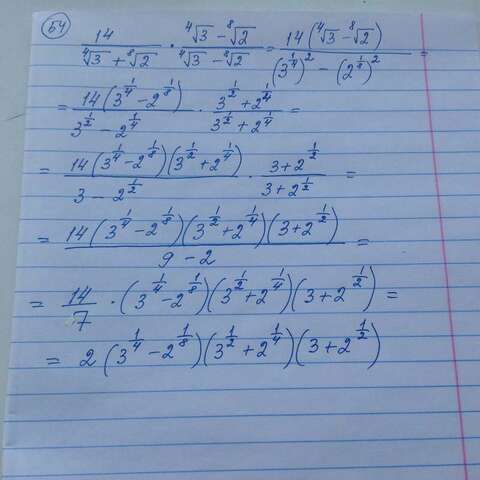 54
14/(⁴√3 + ⁸√2) · (⁴√3 − ⁸√2)/(⁴√3 − ⁸√2) = 14(⁴√3 − ⁸√2)/((3^(1/4))² − (2^(1/8))²) =
= 14(3^(1/4) − 2^(1/8))/(3^(1/2) − 2^(1/4)) · (3^(1/2) + 2^(1/4))/(3^(1/2) + 2^(1/4)) =
= 14(3^(1/4) − 2^(1/8))(3^(1/2) + 2^(1/4))/(3 − 2^(1/2)) · (3 + 2^(1/2))/(3 + 2^(1/2)) =
= 14(3^(1/4) − 2^(1/8))(3^(1/2) + 2^(1/4))(3 + 2^(1/2))/(9 − 2) =
= 14/7 · (3^(1/4) − 2^(1/8))(3^(1/2) + 2^(1/4))(3 + 2^(1/2)) =
= 2(3^(1/4) − 2^(1/8))(3^(1/2) + 2^(1/4))(3 + 2^(1/2))